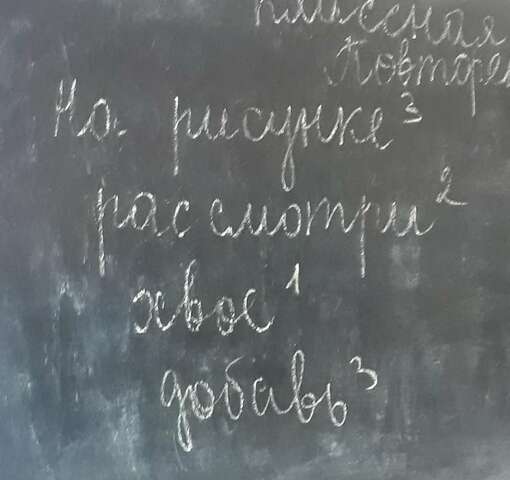 Классная
Повторе
На рисунке³
рассмотри²
хвос¹
добавь³